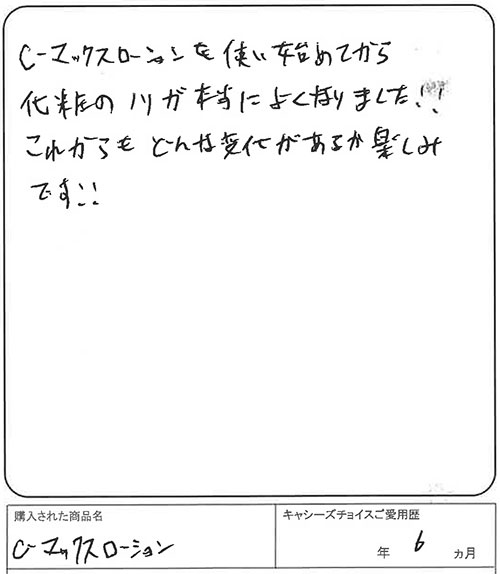 C-マックスローションを使い始めてから
化粧のノリが本当によくなりました!!
これからもどんな変化があるか楽しみ
です!!
購入された商品名
キャシーズチョイスご愛用歴
C-マックスローション
年 6 ヵ月